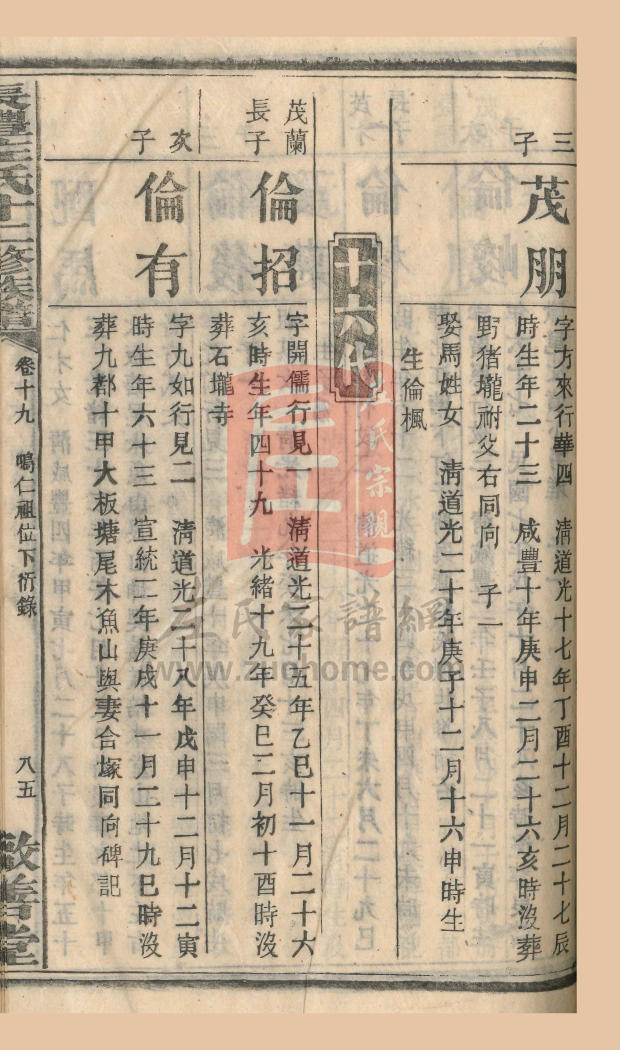 三子
茂朋
字方來行華四 清道光十七年丁酉十二月二十七辰
時生年二十三 咸豐十年庚申二月二十六亥時沒葬
野猪壠祔父右同向 子一
娶馬姓女 清道光二十年庚子十二月十六申時生
生倫楓
十八代
茂蘭長子
倫招
字開儒行見一 清道光二十五年乙巳十一月二十六
亥時生年四十九 光緒十九年癸巳二月初十酉時沒
葬石壠寺
次子
倫有
字九如行見二 清道光二十八年戊申十二月十二寅
時生年六十三 宣統二年庚戌十一月二十九巳時沒
葬九都十甲大板塘尾木魚山與妻合塚同向碑記
長豐左氏十二修族譜
卷十九 鳴仁祖位下衍錄
八五
敦善堂
左氏宗親
左氏家譜網
www.zuohome.com